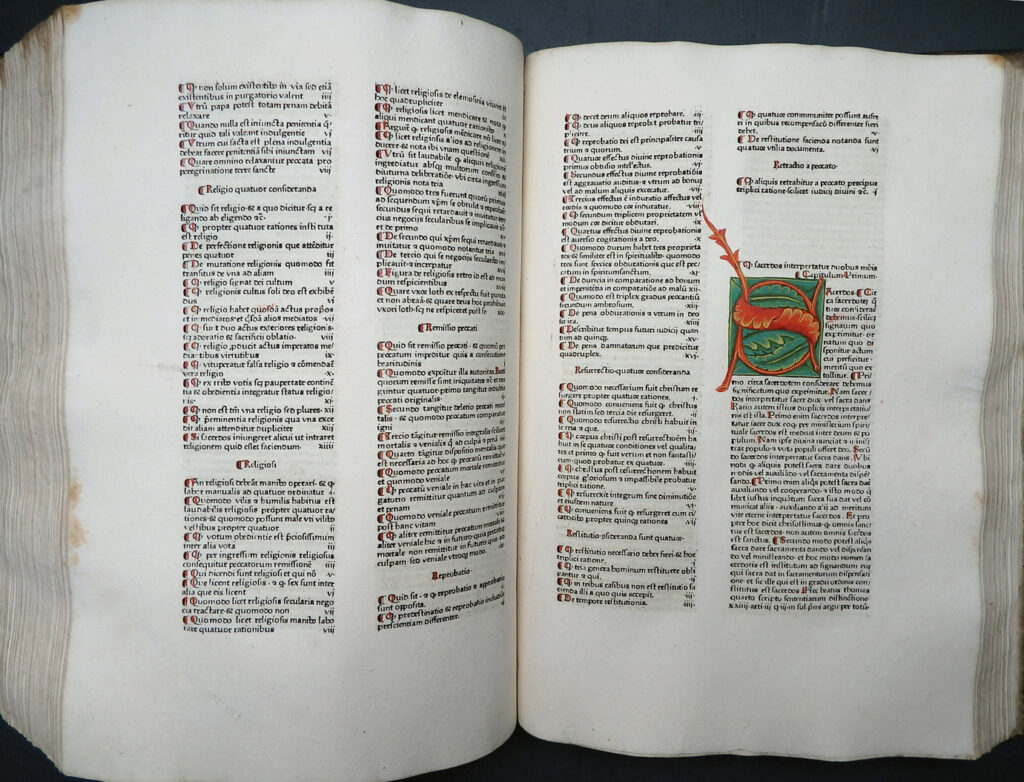 Q non solum existentibꝰ in via sed etiā
existentibus in purgatorio valent iiij
Vtrū papa potest totam penam debitā
relaxare v
Quando nulla est iniuncta penitentia q̄
ritur quid tali valeant indulgentie vi
Vtrum cui facta est plena indulgentia
debeat facere penitentiā sibi iniunctam vij
Quare omnino relaxantur peccata pro
peregrinatione terre sancte viij
Religio quatuor consideranda
Quid sit religio & a quo dicitur
ligando ab eligendo i
Q propter quatuor rationes
est religio ij
De perfectione religionis que
penes quatuor iij
De mutatione religionis quomodo fit
transitus de vna ad aliam iiij
Q religio signat dei cultum v
Q religionis cultus soli deo est exhibē
dus vi
Q religio habet quosdā actus propri
os īmediatos & quosdā alios mediatos vij
Q sūt duo actus exteriores religionis
adoratio & sacrificij oblatio viij
Q religio actus imperatos me
diātibus virtutibus ix
Q vituperatur falsa religio & cōmenda
vera religio x
Q ex tribꝰ votis paupertate contine
tia & obedientia integratur status religio
nis xi
Q non est tm̄ vna religio sed plures xij
Q propter generalia qua vna
dit aliam attenditur dupliciter xij
Si sacerdos iniungeret alicui vt intraret
religionem quid esset faciendum xiiij
Religiosi
An religiosi debeāt manibꝰ operari & q
labor manualis ad quatuor ordinatur
Quomodo vilis & humilis habitus est
laudabilis religiosis propter quatuor ra
tiones & quomodo possunt male vti vilibꝰ
vestibus propter quatuor ij
Q votum obedientie est pciosissimum
inter alia vota iij
Q per ingressum religionis religiosus
consequitur peccatorum remissionem iiij
Qui dicendi sunt religiosi et qui nō v
Que licent religiosis & q̄ sex sunt inter
alia que eis licent vi
Quomodo licet religiosis secularia nego
cia tractare & quomodo non vij
Quomodo licet religiosis manibꝰ labo
rare quatuor rationibus viij
Q licet religiosis de elemosinis viuere
hoc quadrupliciter
Q religiosis licet mendicare &
aliqui mendicant quatuor rationibꝰ x
Arguit q religiosis mendicare nō licet
Q licet religiosis & alios ad religionem
ducere & nota ibi vnam questionē
Vtrū sit laudabile q aliquis religionē
ingrediatur absq multorum consilio &
diuturna deliberatiōe vbi circa ingressum
religionis nota tria
Quomodo tres fuerunt quorum
ad sequendum xp̄m se obtulit & reprobatur
secundus sequi retardauit & inuitatur tertius
negocijs secularibus se implicauit
et de primo
De secundo qui xp̄m sequi retardauit
inuitatur & quomodo notantur tria
De tercio qui se negocijs secularibꝰ
plicauit & increpatur
Figura de religiosis retro id est ad mun
dum respicientibus
Quare vxor loth ex respectu fuit punita
et non abraā & quare deus hoc prohibuit
vxori loth sc̄z ne respiceret post se
Remissio peccati
Quid sit remissio peccati & quomō per
peccatum impeditur quis a consecutione
beatitudinis j
Quomodo exponitur illa autoritas Beati
quorum remisse sunt iniquitates &
quatuor primo tangitur indultio
peccati originalis
Secundo tangitur deletio peccati mor
talis & quomodo peccatum comparatur
igni
Tercio tāgitur remissio integralis scilicet
mortalis & venialis q̄ ad culpā & penā iiij
Quarto tāgitur dispositio mentalis que
est necessaria ad hoc q peccatū remittatur
Quomodo peccatum mortale remittitur
et quomodo veniale
Q peccatū veniale in hac vita et in pur
gatorio remittitur quantum ad culpam
et penam
Quomodo veniale peccatum remittitur
post hanc vitam
Q aliter remittitur peccatum mortale &
aliter veniale hic & in futuro quia peccatū
mortale non remittitur in futuro quo ad
culpam sed veniale vtroq modo
Reprobatio
Quid sit & q reprobatio & approbatio
sunt opposita
Q predestinatio & reprobatio includunt
prescientiam differenter
Q decet deum aliquos reprobare iij
Q deus aliquos reprobat probatur tri
pliciter iiij
Q reprobatio dei est principaliter causa
trium & quorum v
Quatuor effectus diuine reprobationis
primus obtusio intellectus vi
Secundus effectus diuine reprobatiōis
est aggrauatio auditus & vtrum ad bonum
vel ad malum aliquis execatur vij
Tercius effectus ē induratio affectus vel
cordis & quomodo cor induratur viij
Q secundum triplicem proprietatem vl
modum cor dicitur obdurari ix
Quartus effectus diuine reprobationis
est auersio cogitationis a deo x
Quomodo durum habet tres proprieta
tes & similiter est in spiritualibꝰ quomodo
tres sunt species obdurationis que est pec
catum in spiritumsanctum xi
De duricia in comparatione ad bonum
et impenitentia in comparatiōe ad malū xij
Quomodo est triplex gradus peccantiū
secundum ambrosium xij
De pena obdurationis & vtrum in deo
sit ira xiiij
Describitur tempus futuri iudicij quan
tum ad quinq xv
De pena damnatorum que predicitur
quadruplex xvi
Resurrectio quatuor consideranda
Quomodo necessarium fuit christum re
surgere propter quatuor rationes j
Quomodo conueniens fuit q christus
non statim sed tercia die resurgeret ij
Quomodo resurrectio christi habuit in
se tria & que iij
Q corpus christi post resurrectionem ha
buit in se quatuor conditiones vel qualita
tes et primo q fuit verum et non fantasti
cum quod probatur ex quatuor iiij
Q christus post resurrectionem habuit
corpus gloriosum & impassibile probatur
triplici ratione v
Q resurrexit integrum sine diminutiōe
& eiusdem nature vi
Q conueniens fuit q resurgeret cum ci
catricibꝰ propter quinq rationes vij
Restitutio cōsideranda sunt quatuor
Q restitutio necessario debet fieri & hoc
triplici ratione j
Q tria genera hominum restituere obli
gantur & qui ij
Q in tribus casibus non est restitutio fa
cienda illi a quo quis accepit iij
De tempore restitutionis iiij
Q quatuor communiter possunt aufer
ri in quibus recompensacō differenter fieri
debet v
De restitutione facienda notanda sunt
quatuor vtilia documenta vi
Retractio a peccato
Q aliquis retrahitur a peccato precipue
triplici ratione scilicet iudicij diuini &c j
Q sacerdos interpretatur duobus modis
Capitulum Primum
Sacerdos
debemus scilicet
signatum quo
exprimitur or
natum quo di
sponitur actum
cui preficitur
meritū quo ex
tollitur Pri
mo circa sacerdotem considerare debemus
significatum quo exprimitur Nam sacer
dos interpretatur sacer dux vel sacra dans
Ratio autem istius duplicis interpretatio
nis est ista Primo enim sacerdos interpre
tatur sacer dux eoq per ministerium spiri
tuale sacerdos est medius inter deum & po
pulum Nam ipse diuina nunciat & ministrat
populo & vota populi offert deo Secū
do sacerdos interpretatur sacra dans Vbi
nota q aliquis potest sacra dare duobus
modis vel auxiliando vel sacramenta dispensan
do Primo enim aliqs potest sacra dare
vel auxiliando vel cooperando & isto modo q
libet iustus inquātum sacra sua dat vel cō
municat alijs auxiliando alijs ad meritum
vite eterne interpretatur sacerdos Et pro
pter hoc dicit chrisostimus q omnis sanc
tus est sacerdos non autem omnis sacerdos
est sanctus Secundo modo potest aliqs
sacra dare sacramenta dando vel dispensan
do vel ministrando & hoc modo nomen sa
cerdotis est institutum ad signandum eum
qui sacra dat in sacramentorum dispensati
one et sic ille qui est in gradu ordinis con
stitutus est sacerdos Hec beatus thomas
quarto scripto sententiarum distinctione
xxiiij arti iij q ij in sol pmi argu per totū